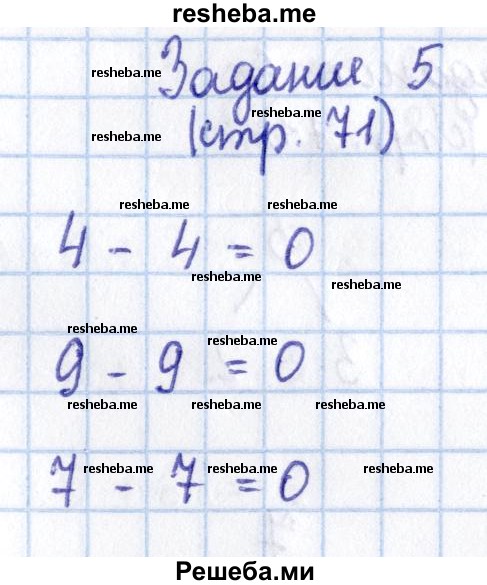 resheba.me
Задание 5
resheba.me
resheba.me
(стр. 71)
resheba.me
resheba.me resheba.me
4 - 4 = 0
resheba.me
resheba.me
resheba.me
resheba.me
9 - 9 = 0
resheba.me resheba.me resheba.me
7 - 7 = 0
resheba.me resheba.me resheba.me
Решеба.ми